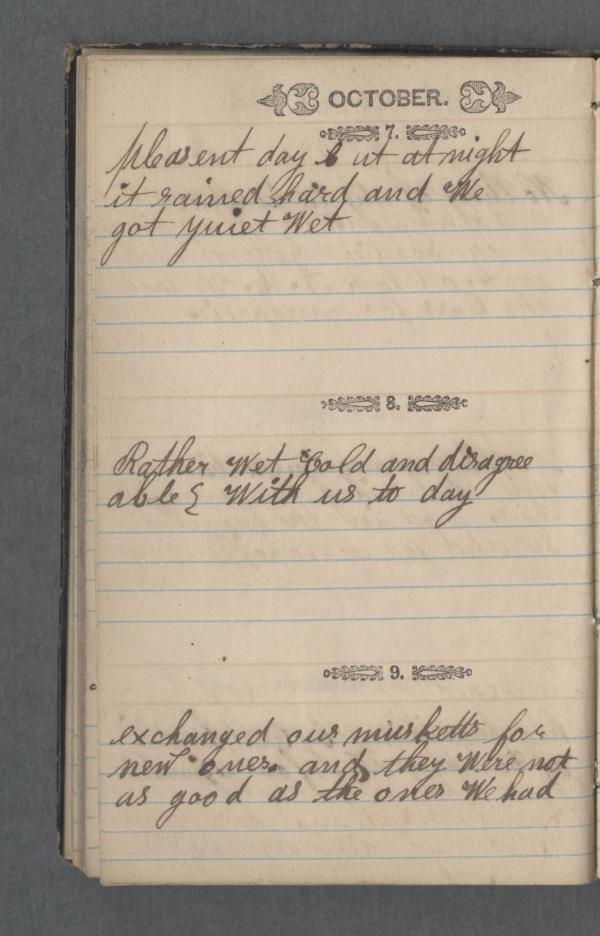 OCTOBER.
7.
pleasent day but at night
it rained hard and We
got quiet Wet
8.
Rather Wet Cold and disagree
able { With us to day
9.
exchanged our musketts for
new ones. and they Were not
as good as the ones We had